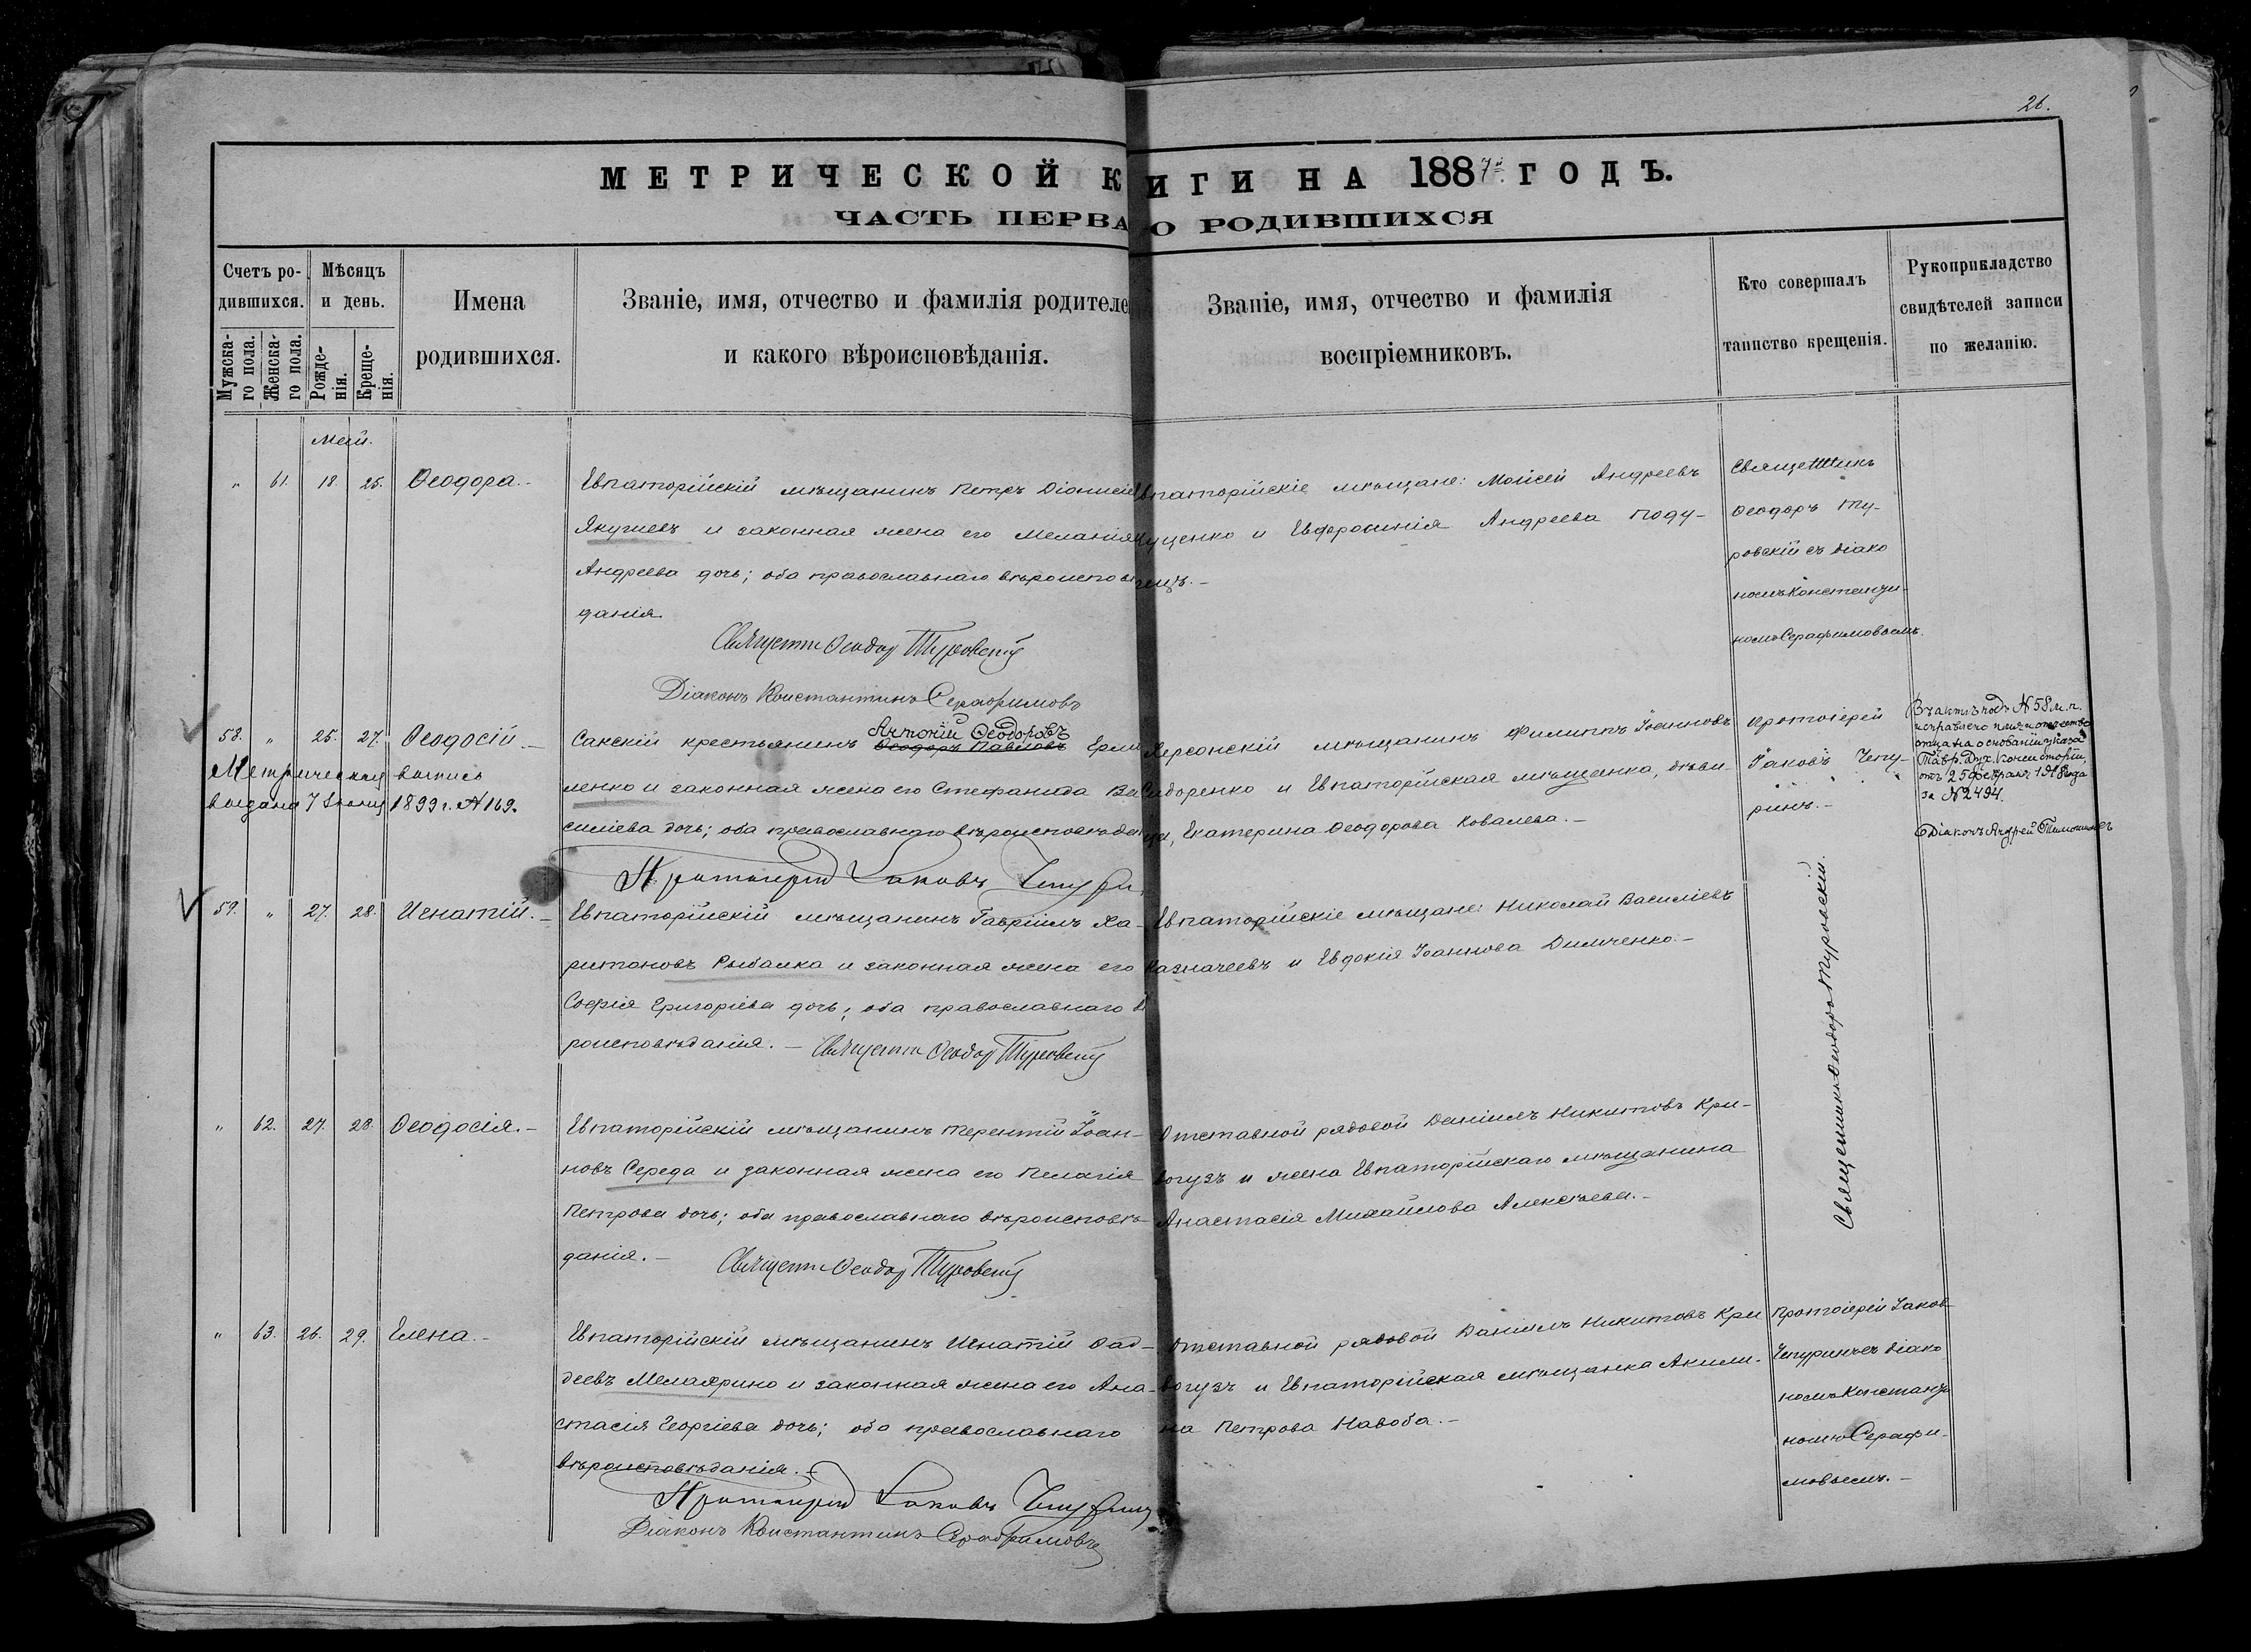 26.
МЕТРИЧЕСКОЙ К ИГИ НА 1887й ГОДЪ.
ЧАСТЬ ПЕРВА О РОДИВШИХСЯ
Счетъ ро-
дившихся.
Мужска-
го пола.
Женска-
го пола.
Мѣсяцъ
и день.
Рожде-
нія.
Креще-
нія.
Имена
родившихся.
Званіе, имя, отчество и фамилія родителе
и какого вѣроисповѣданія.
Званіе, имя, отчество и фамилія
воспріемниковъ.
Кто совершалъ
таинство крещенія.
Рукоприкладство
свидѣтелей записи
по желанію.
Май.
" 61. 18 25. Ѳеодора.-
Евпаторійскій мѣщанинъ Петръ Діонисіе
Якушевъ и законная жена его Меланія
Андреева дочь; оба православнаго вѣроисповѣ
данія.
Священник Ѳеодор Туровскій
Діаконъ Константинъ Серафимовъ
впаторійскіе мѣщане: Моисей Андреевъ
уценко и Евфросинія Андреева Поду-
Священникъ
Ѳеодоръ Ту-
ровскій съ діако
номъ Константи-
номъ Серафимовымъ.
58. " 25. 27. Ѳеодосій.-
Метрическая выпись
выдана 7 1899 г. № 169.
Сакскій крестьянинъ Антоній Ѳеодоровъ Ѳеодоръ Павловъ Ерми
ленко и законная жена его Стефанида Ва
силіева дочь; оба православнаго вѣроисповѣда
Протоіерей Іаковъ Чепурин
Херсонскій мѣщанинъ Филиппъ Іоанновъ
Сидоренко и Евпаторійская мѣщанка, дѣви-
ца, Екатерина Ѳеодорова Ковалева.-
Протоіерей
Іаковъ Чепу-
ринъ.-
Въ актѣ подъ № 58 м. п.
исправлено имя и отчество
отца на основаніи указа
Тавр. Дух. Консисторіи,
отъ 25 февраля 1918 года
за № 2494.
Діаконъ Андрей
59. " 27. 28. Игнатій.-
Евпаторійскій мѣщанинъ Гавріилъ Ха-
ритоновъ Рыбалка и законная жена его
Софія Григоріева дочь; оба православнаго в
роисповѣданія.- Священник Ѳеодор Туровскій
Евпаторійскіе мѣщане: Николай Василіевъ
Казначеевъ и Евдокія Іоаннова Димченко.-
Священникъ Ѳеодоръ Туровскій.
" 62. 27. 28. Ѳеодосія.-
Евпаторійскій мѣщанинъ Терентій Іоан-
новъ Середа и законная жена его Пелагія
Петрова дочь; оба православнаго вѣроисповѣ-
данія.- Священник Ѳеодор Туровскій
Отставной рядовой Даніилъ Никитовъ Кри-
вогузъ и жена Евпаторійскаго мѣщанина
Анастасія Михайлова Алексѣева.-
" 63. 26. 29. Елена.-
Евпаторійскій мѣщанинъ Игнатій Ѳад-
деевъ Мелаярино и законная жена его Ана-
стасія Георгіева дочь; оба православнаго
вѣроисповѣданія.-
Протоіерей Іаковъ Чепурин
Діаконъ Константинъ Серафимовъ
Отставной рядовой Даніилъ Никитовъ Кри
вогузъ и Евпаторійская мѣщанка Акили-
на Петрова Навоба.-
Протоіерей Іаковъ
Чепуринъ съ діако
номъ Константи
номъ Серафи-
мовымъ.-